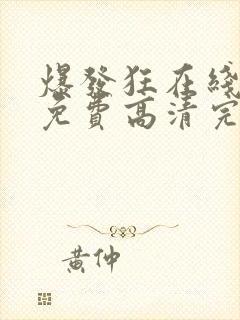 爆發狂在綫
免費高清完
黃仲